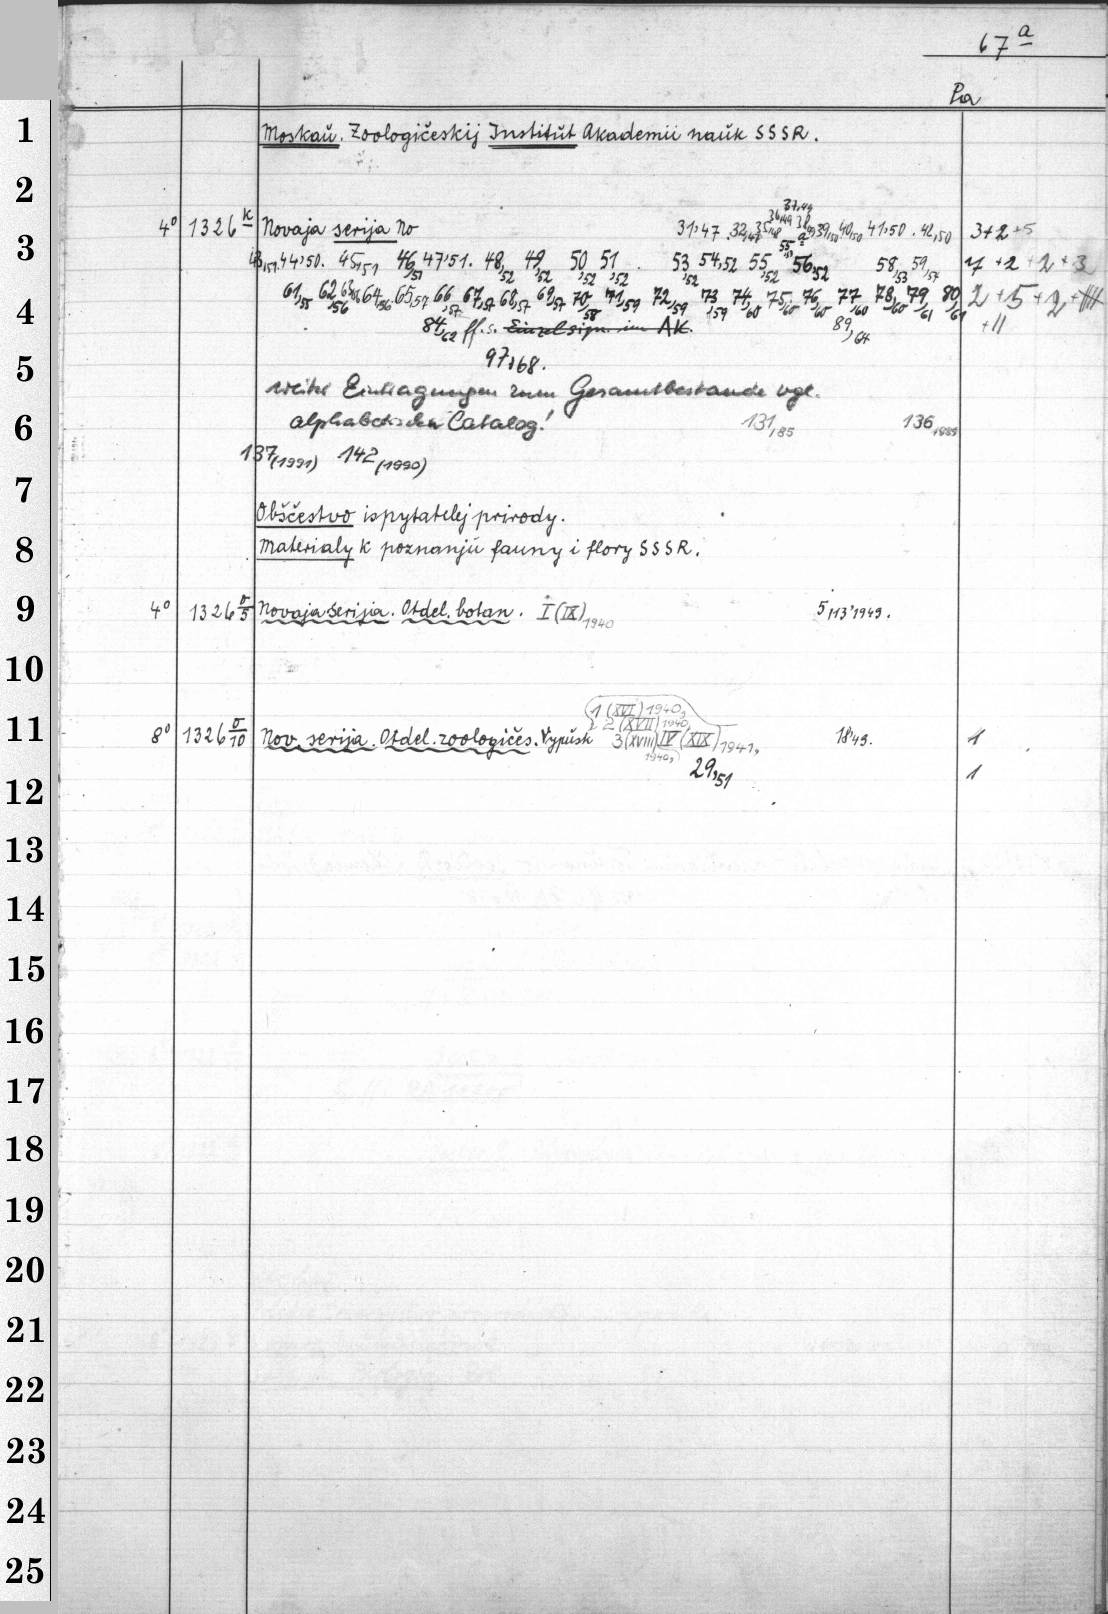 67 a
Pa
1 Moskaŭ. Zoologičeskij Institŭt Akademii naŭk SSSR.
2
37,49
36,49 38,49
4° 1326 k Novaja serija No 31,47 . 32,47 35,48 39,50 40,50 41,50 . 42,50 3+2+5
3
55 a
43,51. 44,50. 45,51 46,51 47,51. 48,52 49,52 50,52 51,52 . 53,52 54,52 55,52 56,52 58,53 59,54 7+2+2+3
4
61,55 62,56 63,56 64,56 65,57 66,57 67,57 68,57 69,57 70,58 71,59 72,59 73,59 74,60 75,60 76,60 77,60 78,60 79,61 80,61 2+5+2+
84,62 ff. s. Einzelsign. im AK. 89,64 +11
5 97,68.
weitere Eintragungen zum Gesamtbestande vgl.
6 alphabetischen Catalog! 131,85 136,1989
137(1991) 142(1990)
7
Obščestvo ispytatelej prirody.
8 Materialy k poznanjŭ fauny i flory SSSR.
9 4° 1326 σ/5 Novaja serija. Otdel. botan. I (IX) 1940 5,113'1949.
10
1 (XVI) 1940,
2 (XVII) 1940,
11 8° 1326 σ/10 Nov. serija. Otdel. zoologičes. Vypŭsk 3 (XVIII) IV (XIX) 1941, 18'49. 1
1940,
12 29,51 1
13
14
15
16
17
18
19
20
21
22
23
24
25